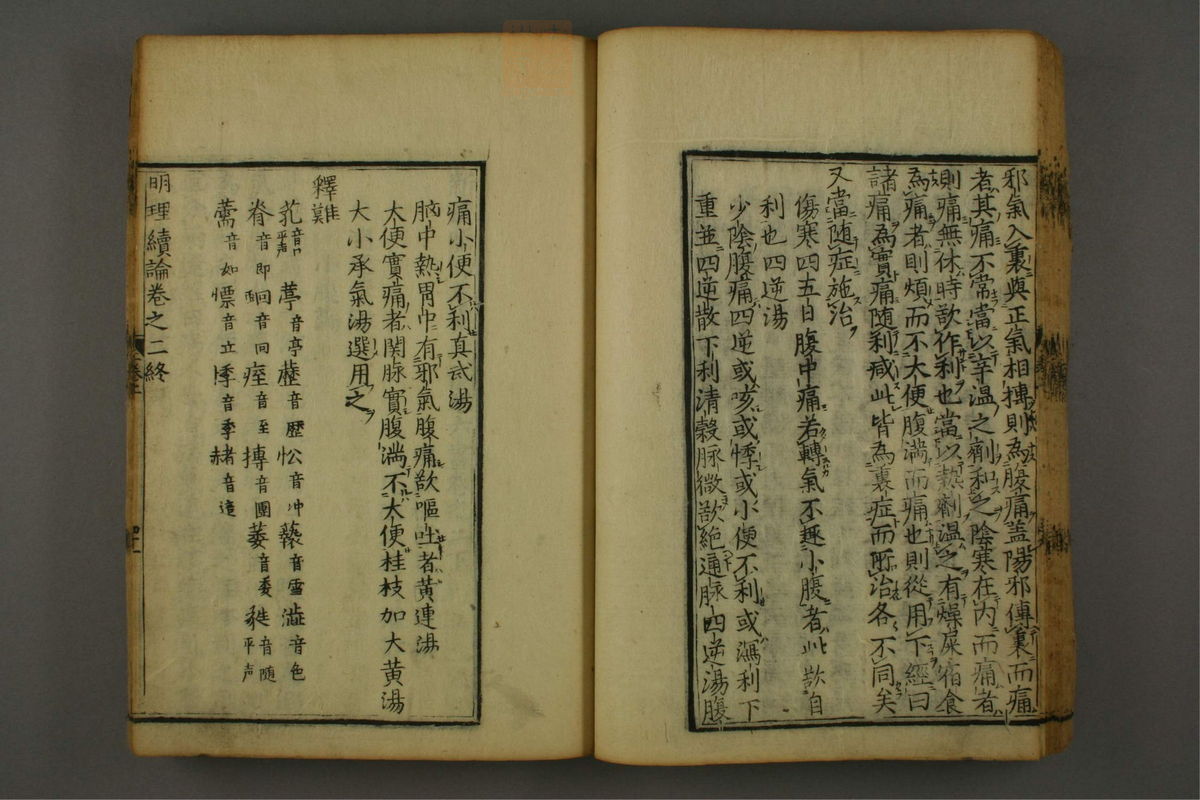 邪氣入裏與正氣相搏則為腹痛盖陽邪傳裏而痛
者其痛不常當以辛温之劑和之陰寒在内而痛者
則痛無休時欲作利也當以熱劑温之有燥屎宿食
為痛者則煩而不大便腹満而痛也則從用下經曰
諸痛為實痛随利减此皆為裏症而所治各不同矣
又當随症施治
傷寒四五日腹中痛若轉氣下趣小腹者此欲自
利也四逆湯
少陰腹痛四逆或咳或悸或小便不利或瀉利下
重並四逆散下利清穀脉微欲絶通脉四逆湯腹
痛小便不利真武湯
胸中熱胃中有邪氣腹痛欲嘔吐者黄連湯
太便實痛者関脉實腹満不大便桂枝加大黄湯
大小承氣湯選用之
釋難
芤音口平声 葶音亭 藶音歷 忪音冲 音雪 澁音色
脊音即 音同 痓音至 摶音團 萎音委 音随平声
薷音如 慓音立 悸音季 赭音
明理續論卷之二終